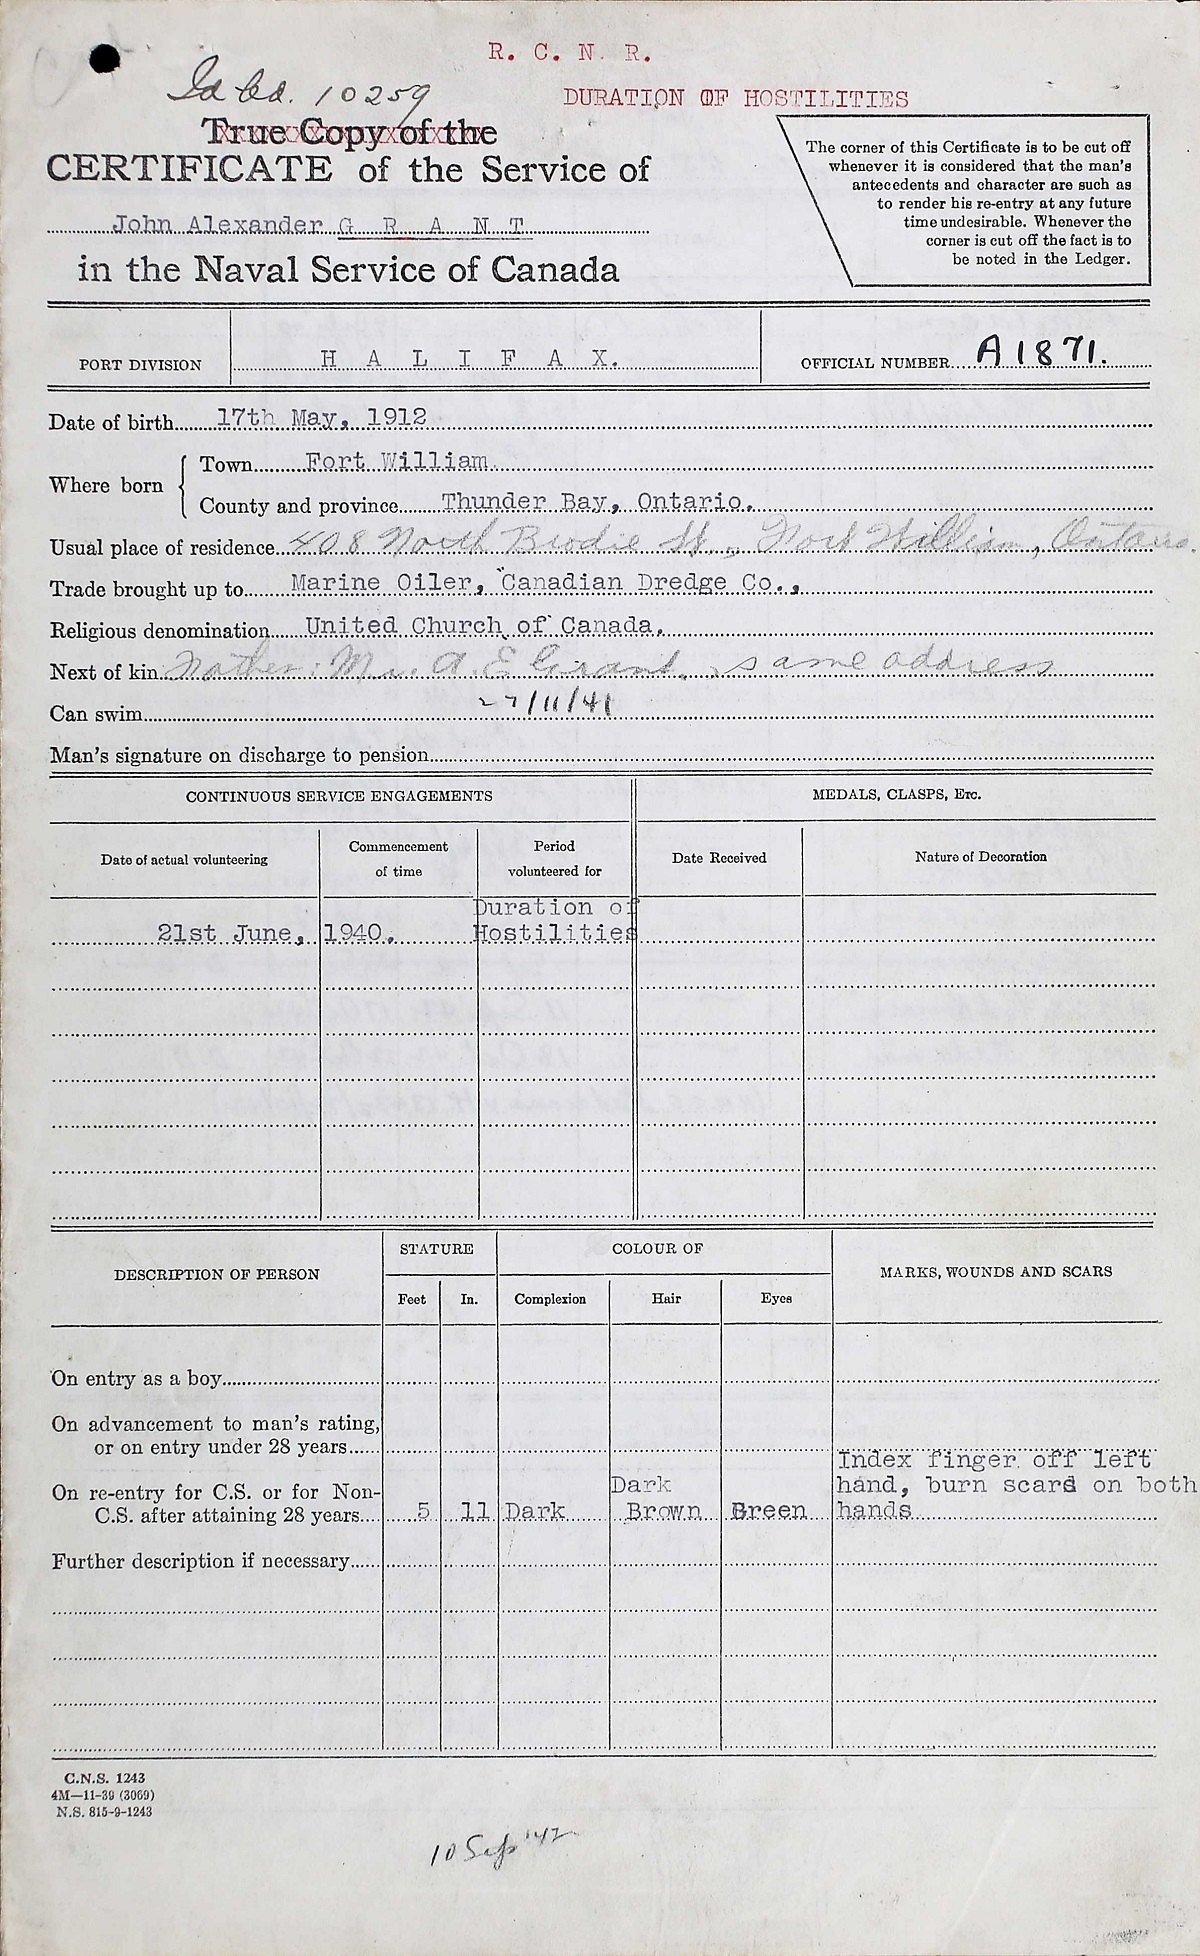 R. C. N. R.
Id Cd. 10259
DURATION OF HOSTILITIES
True Copy of the
CERTIFICATE of the Service of
John Alexander G R A N T
in the Naval Service of Canada
The corner of this Certificate is to be cut off
whenever it is considered that the man's
antecedents and character are such as
to render his re-entry at any future
time undesirable. Whenever the
corner is cut off the fact is to
be noted in the Ledger.
PORT DIVISION H A L I F A X. OFFICIAL NUMBER A1871.
Date of birth 17th May, 1912
Where born
Town Fort William
County and province Thunder Bay, Ontario.
Usual place of residence 408 North Brodie St., Fort William, Ontario.
Trade brought up to Marine Oiler, Canadian Dredge Co.,
Religious denomination United Church of Canada.
Next of kin Mother: Mrs. A. E Grant, same address
Can swim 27/11/41
Man's signature on discharge to pension
CONTINUOUS SERVICE ENGAGEMENTS MEDALS, CLASPS, ETC.
Date of actual volunteering Commencement of time Period volunteered for Date Received Nature of Decoration
Duration of
21st June, 1940. Hostilities
DESCRIPTION OF PERSON STATURE COLOUR OF MARKS, WOUNDS AND SCARS
Feet In. Complexion Hair Eyes
On entry as a boy
On advancement to man's rating,
or on entry under 28 years
Index finger off left
On re-entry for C.S. or for Non- Dark hand, burn scars on both
C.S. after attaining 28 years 5 11 Dark Brown Green hands
Further description if necessary
C.N.S. 1243
4M—11-39 (3069)
N.S. 815-9-1243
10 Sep '42